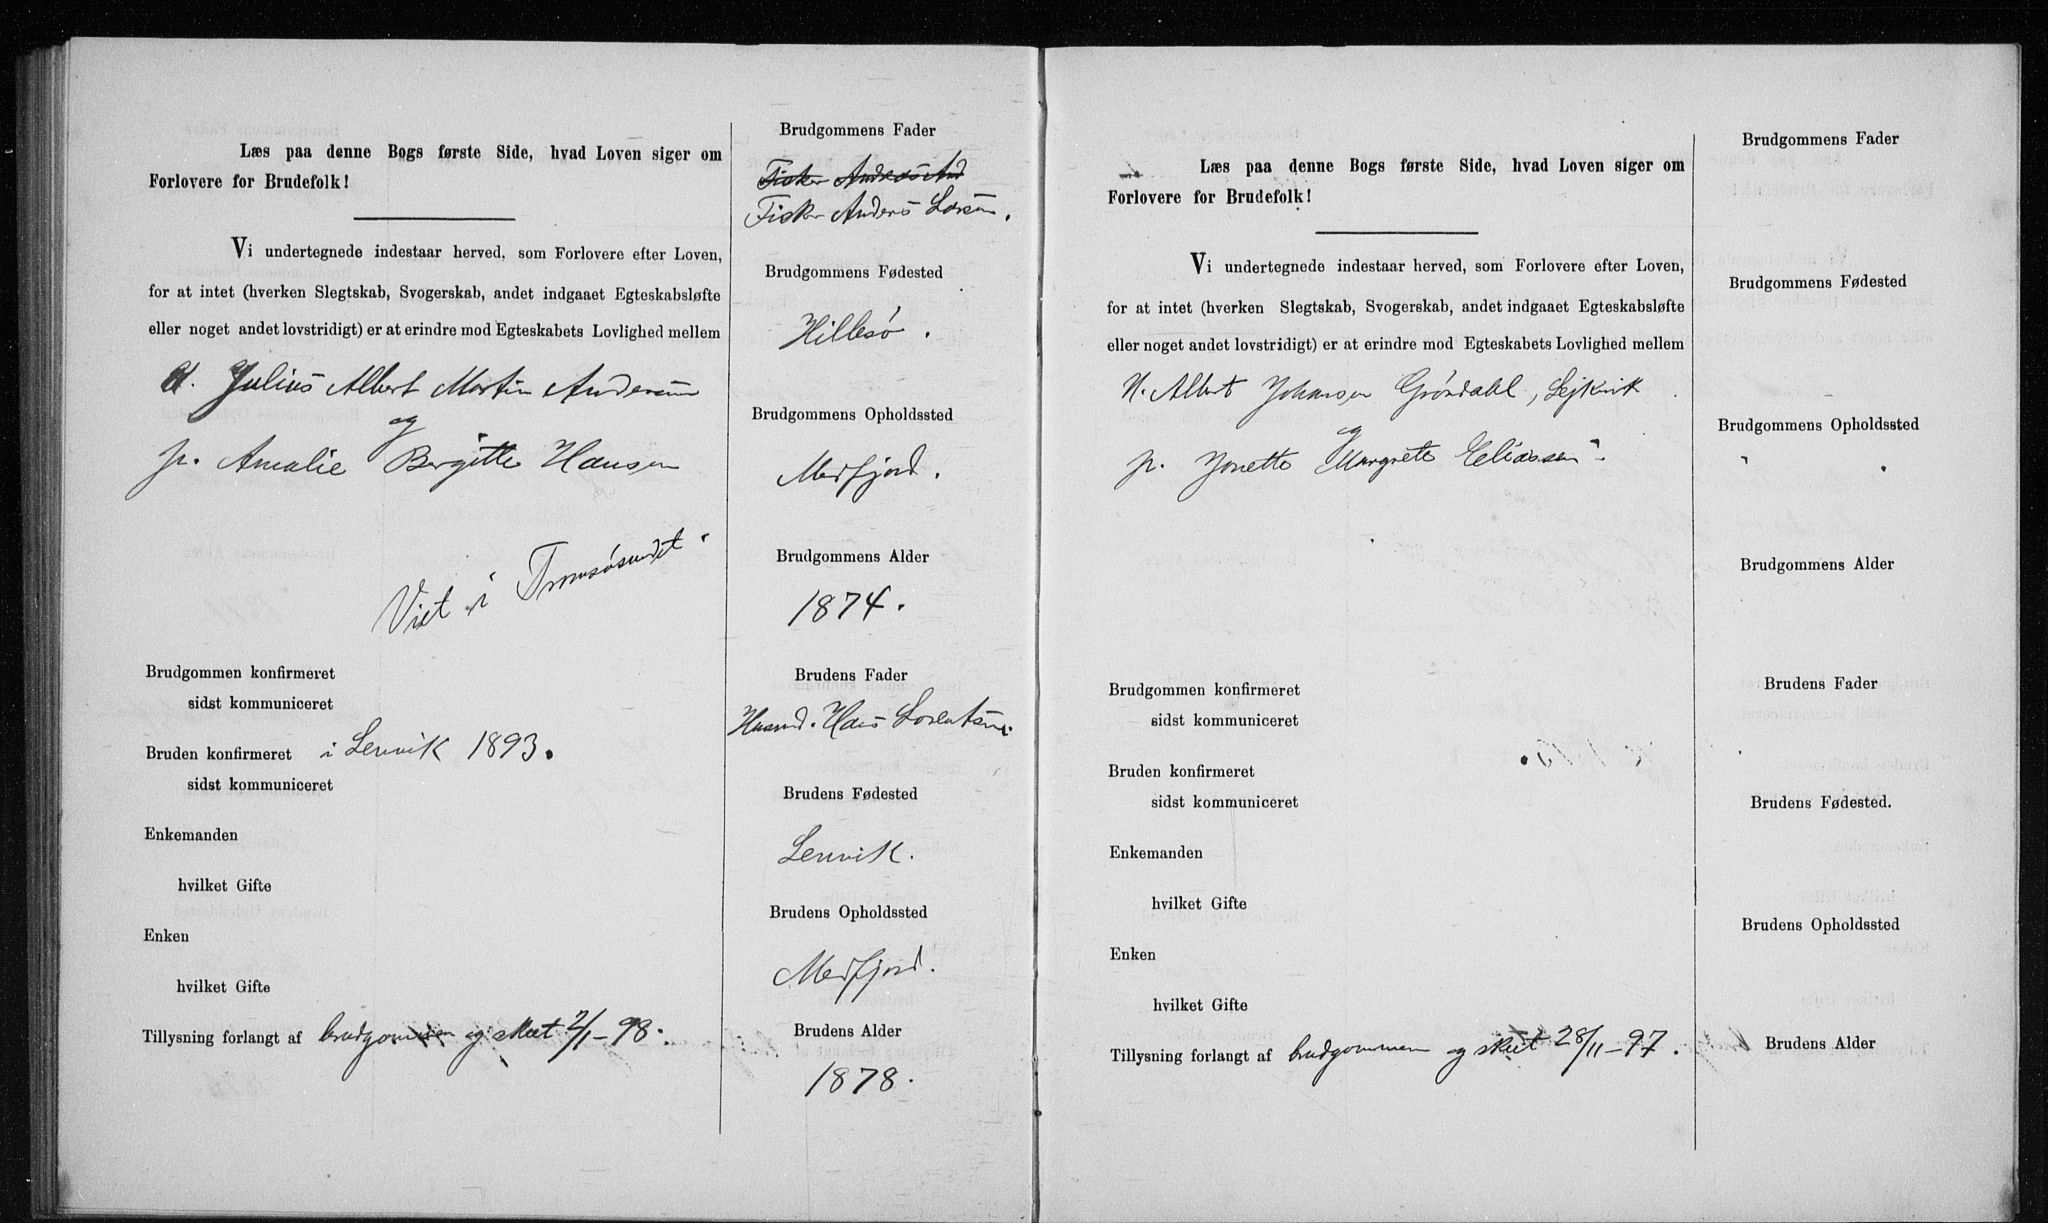 Læs paa denne Bogs første Side, hvad Loven siger om
Forlovere for Brudefolk!
Vi undertegnede indestaar herved, som Forlovere efter Loven,
for at intet (hverken Slegtskab, Svogerskab, andet indgaaet Egteskabsløfte
eller noget andet lovstridigt) er at erindre mod Egteskabets Lovlighed mellem
Julius Albert Martin Andersen
og
p. Amalie Bergitte Hansen
Viet i Tromsøsundet
Brudgommen konfirmeret
sidst kommuniceret
Bruden konfirmeret i Lenvik 1893.
sidst kommuniceret
Enkemanden
hvilket Gifte
Enken
hvilket Gifte
Tillysning forlangt af brudgommen og skeet 2/1-98.
Brudgommens Fader
Fisker Anders Larsen.
Brudgommens Fødested
Hillesø.
Brudgommens Opholdssted
Medfjord.
Brudgommens Alder
1874.
Brudens Fader
Husmd. Hans Lorentsen.
Brudens Fødested
Lenvik.
Brudens Opholdssted
Medfjord.
Brudens Alder
1878.
Læs paa denne Bogs første Side, hvad Loven siger om
Forlovere for Brudefolk!
Vi undertegnede indestaar herved, som Forlovere efter Loven,
for at intet (hverken Slegtskab, Svogerskab, andet indgaaet Egteskabsløfte
eller noget andet lovstridigt) er at erindre mod Egteskabets Lovlighed mellem
Albert Johansen Grøndahl, Lejkvik
og
p. Jonette Margrete Eliassen
Brudgommen konfirmeret
sidst kommuniceret
Bruden konfirmeret
sidst kommuniceret
Enkemanden
hvilket Gifte
Enken
hvilket Gifte
Tillysning forlangt af brudgommen og skeet 28/11-97.
Brudgommens Fader
Brudgommens Fødested
Brudgommens Opholdssted
Brudgommens Alder
Brudens Fader
Brudens Fødested.
Brudens Opholdssted
Brudens Alder